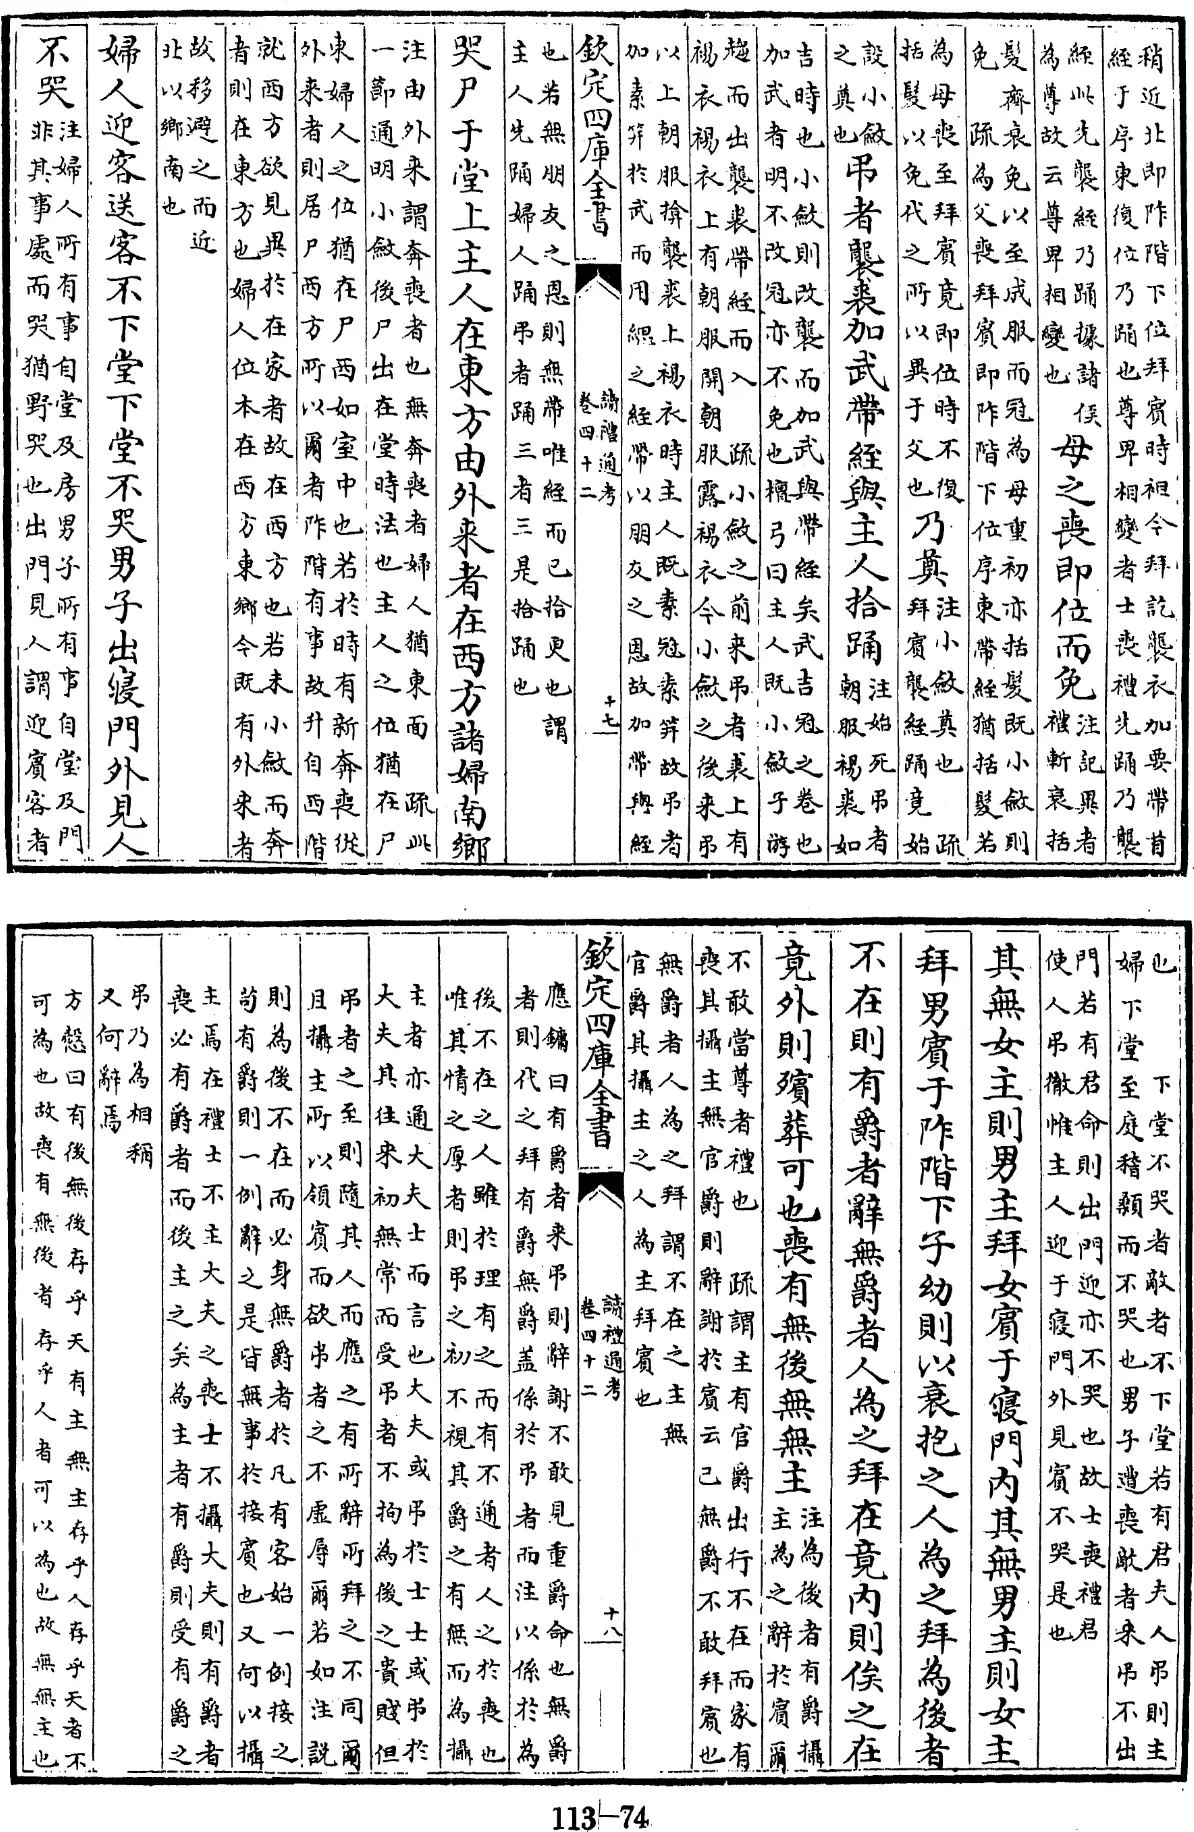 稍近北即阼階下位拜賓時袒今拜訖襲衣加要帶首
絰于序東復位乃踊也尊卑相變者士喪禮先踊乃襲
絰此先襲絰乃踊據諸侯
為尊故云尊卑相變也
母之喪即位而免
注記異者
禮斬衰括
髮齊衰免以至成服而冠為母重初亦括髮既小斂則
免 疏為父喪拜賓即阼階下位序東帶絰猶括髮若
為母喪至拜賓竟即位時不復
括髮以免代之所以異于父也
乃奠
注小斂奠也 疏
拜賓襲絰踊竟始
設小斂
之奠也
弔者襲裘加武帶絰與主人拾踊
注始死弔者
朝服裼裘如
吉時也小斂則改襲而加武與帶絰矣武吉冠之卷也
加武者明不改冠亦不免也檀弓曰主人既小斂子游
趨而出襲裘帶絰而入 疏小斂之前來弔者裘上有
裼衣裼衣上有朝服開朝服露裼衣今小斂之後來弔
以上朝服揜襲裘上裼衣時主人既素冠素弁故弔者
加素弁於武而用緦之絰帶以朋友之恩故加帶與絰
欽定四庫全書
讀禮通考
卷四十二
十七
也若無朋友之恩則無帶唯絰而已拾更也 謂
主人先踊婦人踊弔者踊三者三是拾踊也
哭尸于堂上主人在東方由外來者在西方諸婦南鄉
注由外來謂奔喪者也無奔喪者婦人猶東面 疏此
一節通明小斂後尸出在堂時法也主人之位猶在尸
東婦人之位猶在尸西如室中也若於時有新奔喪從
外來者則居尸西方所以爾者阼階有事故升自西階
就西方欲見異於在家者故在西方也若未小斂而奔
者則在東方也婦人位本在西方東鄉今既有外來者
故移避之而近
北以鄉南也
婦人迎客送客不下堂下堂不哭男子出寢門外見人
不哭
注婦人所有事自堂及房男子所有事自堂及門
非其事處而哭猶野哭也出門見人謂迎賓客者
也 下堂不哭者敵者不下堂若有君夫人弔則主
婦下堂至庭稽顙而不哭也男子遭喪敵者來弔不出
門若有君命則出門迎亦不哭也故士喪禮君
使人弔徹帷主人迎于寢門外見賓不哭是也
其無女主則男主拜女賓于寢門內其無男主則女主
拜男賓于阼階下子幼則以衰抱之人為之拜為後者
不在則有爵者辭無爵者人為之拜在竟內則俟之在
竟外則殯葬可也喪有無後無無主
注為後者有爵攝
主為之辭於賓爾
不敢當尊者禮也 疏謂主有官爵出行不在而家有
喪其攝主無官爵則辭謝於賓云己無爵不敢拜賓也
無爵者人為之拜謂不在之主無
官爵其攝主之人為主拜賓也
欽定四庫全書
讀禮通考
卷四十二
十八
應鏞曰有爵者來弔則辭謝不敢見重爵命也無爵
者則代之拜有爵無爵蓋係於弔者而注以係於為
後不在之人雖於理有之而有不通者人之於喪也
唯其情之厚者則弔之初不視其爵之有無而為攝
主者亦通大夫士而言也大夫或弔於士士或弔於
大夫其往來初無常而受弔者不拘為後之貴賤但
弔者之至則隨其人而應之有所辭所拜之不同爾
且攝主所以領賓而欲弔者之不虛辱爾若如注說
則為後不在而必身無爵者於凡有客始一例接之
苟有爵則一例辭之是皆無事於接賓也又何以攝
主焉在禮士不主大夫之喪士不攝大夫則有爵者
喪必有爵者而後主之矣為主者有爵則受有爵之
弔乃為相稱
又何辭焉
方慤曰有後無後存乎天有主無主存乎人存乎天者不
可為也故喪有無後者存乎人者可以為也故無無主也
113-74